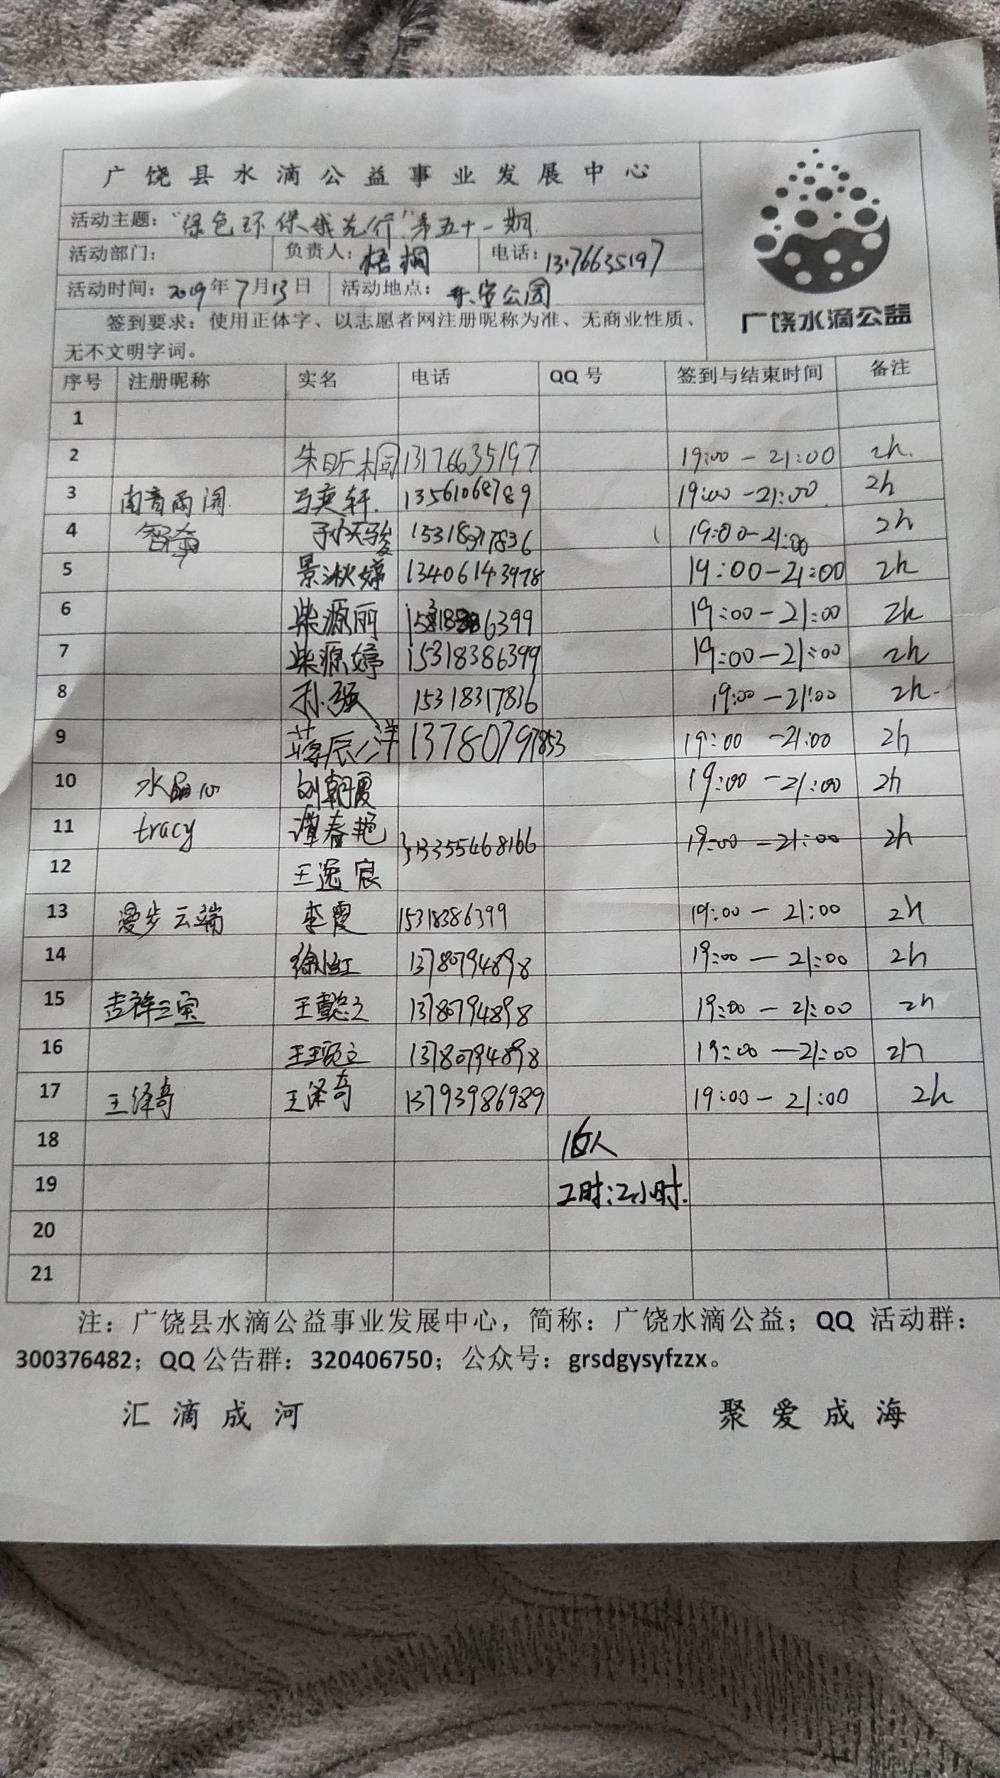 广饶县水滴公益事业发展中心
活动主题："绿色环保我先行"第五十一期
活动部门： 负责人：梧桐 电话：13176635197
活动时间：2019年7月13日 活动地点：乐安公园
签到要求：使用正体字、以志愿者网注册昵称为准、无商业性质、
无不文明字词。
广饶水滴公益
序号 注册昵称 实名 电话 QQ号 签到与结束时间 备注
1
2 朱昕桐 13176635197 19:00-21:00 2h.
3 马奕轩 13561068789 19:00-21:00 2h
4 15318317836 19:00-21:00 2h
5 景淑婷 13406143978 19:00-21:00 2h
6 柴源丽 15318386399 19:00-21:00 2h
7 柴源婷 15318386399 19:00-21:00 2h
8 孙强 15318317836 19:00-21:00 2h.
9 蒋辰洋 13780797853 19:00-21:00 2h
10 水晶心 刘朝霞 19:00-21:00 2h
11 tracy 谭春艳 13355468166 19:00-21:00 2h
12 王逸宸
13 漫步云端 李霞 15318386399 19:00-21:00 2h
14 徐小红 13780794898 19:00-21:00 2h
15 吉祥三宝 王懿之 13780794898 19:00-21:00 2h
16 13780794898 19:00-21:00 2h
17 王泽奇 王泽奇 13793986989 19:00-21:00 2h
18 16人
19 工时：2小时.
20
21
注：广饶县水滴公益事业发展中心，简称：广饶水滴公益；QQ 活动群：
300376482；QQ公告群：320406750；公众号：grsdgysyfzzx。
汇滴成河 聚爱成海